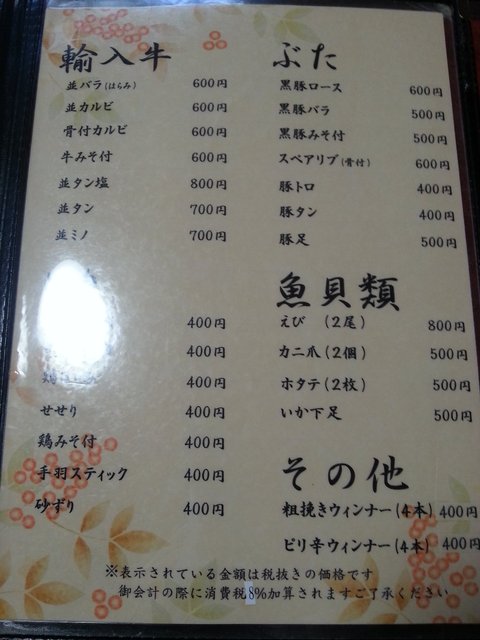 輸入牛
並バラ(はらみ) 600円
並カルビ 600円
骨付カルビ 600円
牛みそ付 600円
並タン塩 800円
並タン 700円
並ミノ 700円
400円
400円
400円
せせり 400円
鶏みそ付 400円
手羽スティック 400円
砂ずり 400円
ぶた
黒豚ロース 600円
黒豚バラ 500円
黒豚みそ付 500円
スペアリブ(骨付) 600円
豚トロ 400円
豚タン 400円
豚足 500円
魚貝類
えび (2尾) 800円
カニ爪 (2個) 500円
ホタテ (2枚) 500円
いか下足 500円
その他
粗挽きウィンナー(4本) 400円
ピリ辛ウィンナー(4本) 400円
※表示されている金額は税抜きの価格です
御会計の際に消費税8%加算されますご了承ください